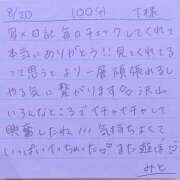 8/20 100分 T様
写メ日記 毎日チェックしてくれて
本当にありがとう!! 見てくれてる
って思うとより一層頑張れるし
やる気に繋がります♡ 沢山
いろんなところでイチャイチャして
興奮したね!!! 気持ちよくて
いっぱいイっちゃいた♡♡ また遊ぼ♡
みと